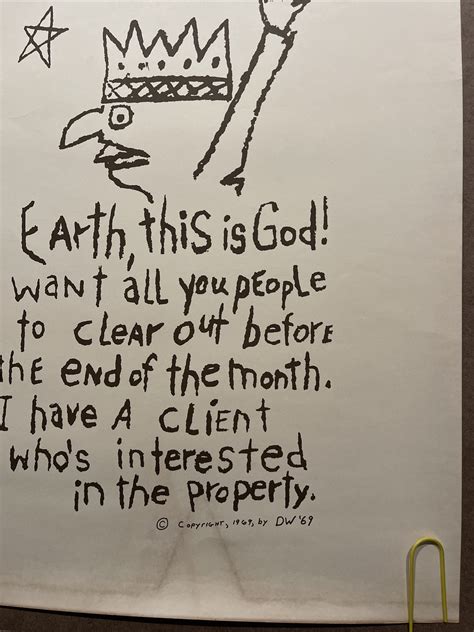 Earth, this is God!
want all you people
to clear out before
the end of the month.
I have a client
who's interested
in the property.
© Copyright, 1969, by DW '69